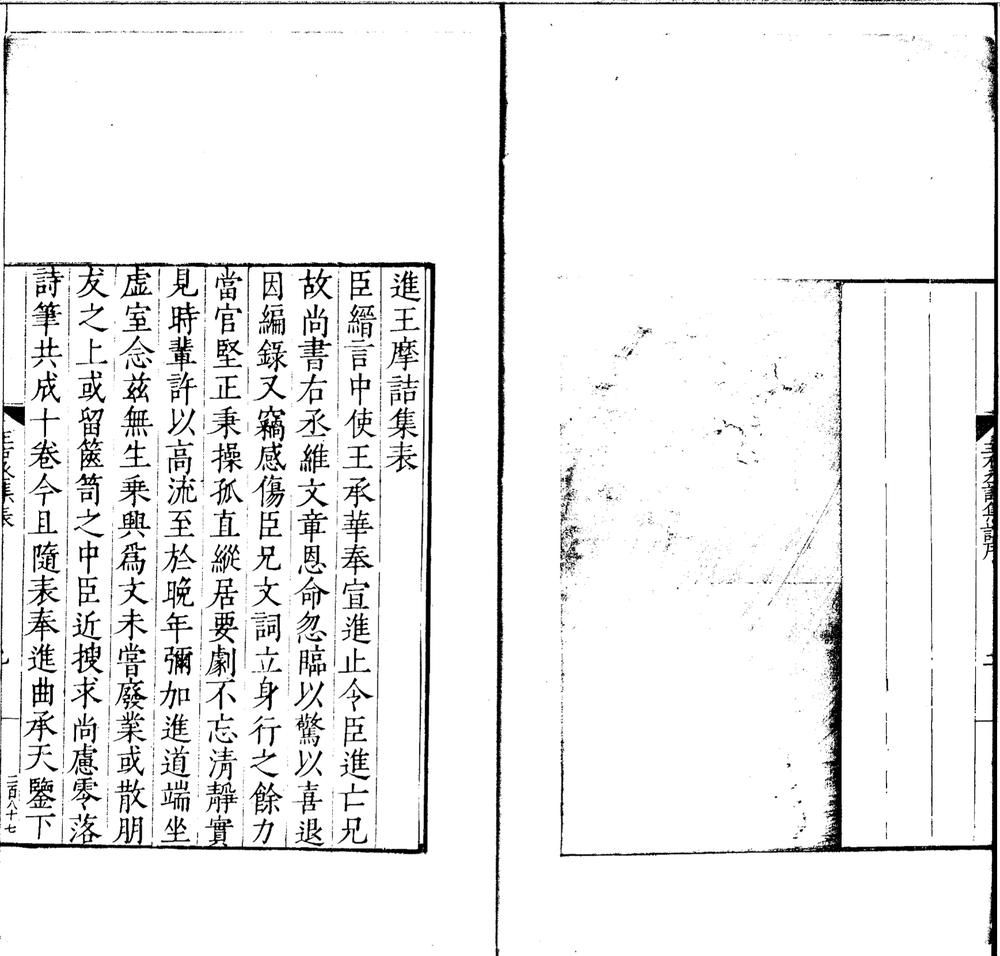 進王摩詰集表
臣縉言中使王承華奉宣進止令臣進亡兄
故尚書右丞維文章恩命忽臨以驚以喜退
因編錄又竊感傷臣兄文詞立身行之餘力
當官堅正秉操孤直縱居要劇不忘清靜實
見時輩許以高流至於晚年彌加進道端坐
虛室念茲無生乘興爲文未嘗廢業或散朋
友之上或留篋笥之中臣近搜求尚慮零落
詩筆共成十卷今且隨表奉進曲承天鑒下
二百八十七